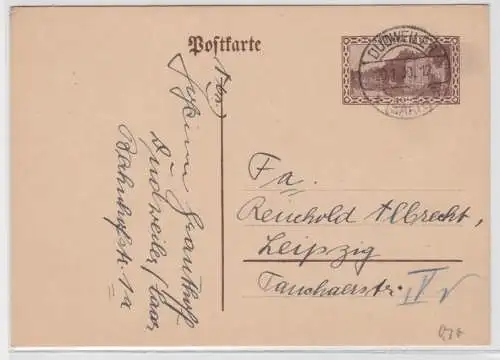 Postkarte
DUDWEILER
(SAAR)
Abs.
Granthoff
Dudweiler / Saar
Bahnhofstr. 1a
Fa.
Reinhold Albrecht,
Leipzig
Tauchaerstr.
IV